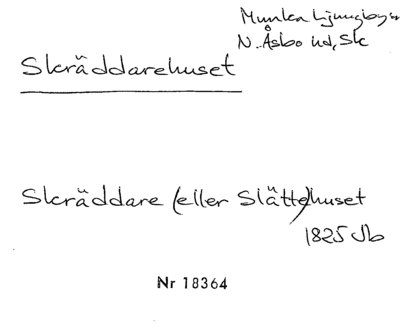 Munka Ljungby sn
N. Åsbo hd, Sk
Skräddarehuset
Skräddare (eller Slätte)huset
1825 Jb
Nr 18364